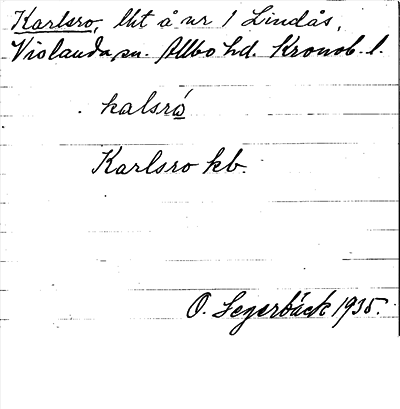 Karlsro, lht å nr 1 Lindås,
Vislanda sn. Allbo hd. Kronob. l.
kalsró
Karlsro kb.
O. Segerbäck 1935.